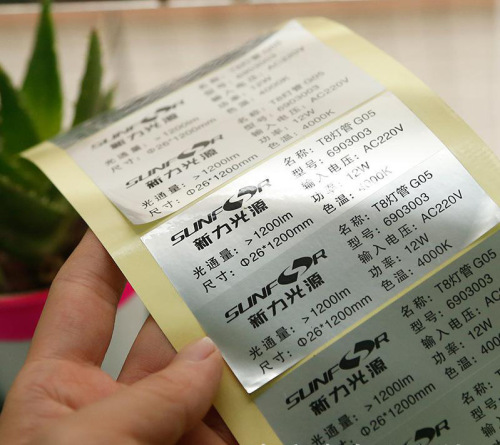 T8灯管 G05
6903003
AC220V
12W
4000K
SUNFOR
新力光源
光通量: >1200lm
尺寸: Φ26*1200mm
名称: T8灯管 G05
型号: 6903003
输入电压: AC220V
功率: 12W
色温: 4000K
SUNFOR
新力光源
光通量: >1200lm
尺寸: Φ26*1200mm
名称: T8灯管 G05
型号: 6903003
输入电压: AC220V
功率: 12W
色温: 4000K
SUNFOR
新力光源
光通量: >1200lm
尺寸: Φ26*1200mm
名称: T8灯管 G05
型号: 6903003
输入电压: AC220V
功率: 12W
色温: 4000K
SUNFOR
新力光源
光通量: >1200lm
尺寸: Φ26*1200mm